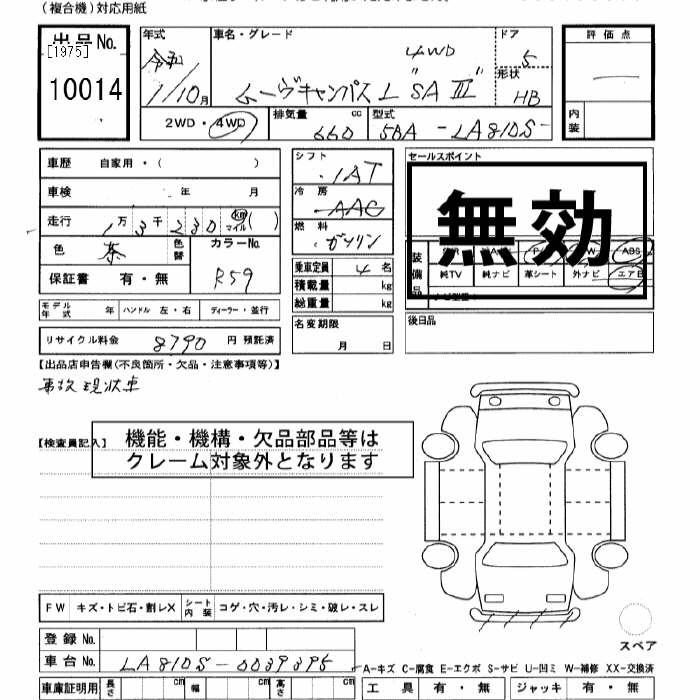 (複合機)対応用紙
出品No.
[1975]
10014
年式
令和
1/10月
車名・グレード
4WD
ムーヴキャンバス L "SA Ⅲ"
ドア
5
形状
HB
評価点
内装
2WD・4WD
排気量
660 cc
型式
5BA - LA810S -
車歴 自家用・( )
車検 年 月
走行 1万3千230 km マイル ( )
色 茶
色替
カラーNo.
R59
保証書 有・無
モデル年式 年 ハンドル 左・右 ディーラー・並行
リサイクル料金 8790 円 預託済
シフト
IAT
冷房
AAC
燃料
ガソリン
乗車定員 4 名
積載量 kg
総重量 kg
名変期限
月 日
セールスポイント
無効
装備品
ABS
純TV 純ナビ 革シート 外ナビ エアB
後日品
【出品店申告欄(不良箇所・欠品・注意事項等)】
事故現状車
【検査員記入】
機能・機構・欠品部品等は
クレーム対象外となります
FW キズ・トビ石・割レX シート内装 コゲ・穴・汚レ・シミ・破レ・スレ
スペア
登録No.
車台No. LA810S-0039395
A-キズ C-腐食 E-エクボ S-サビ U-凹ミ W-補修 XX-交換済
車庫証明用 長さ cm 幅 cm 高さ cm
工具 有・無 ジャッキ 有・無